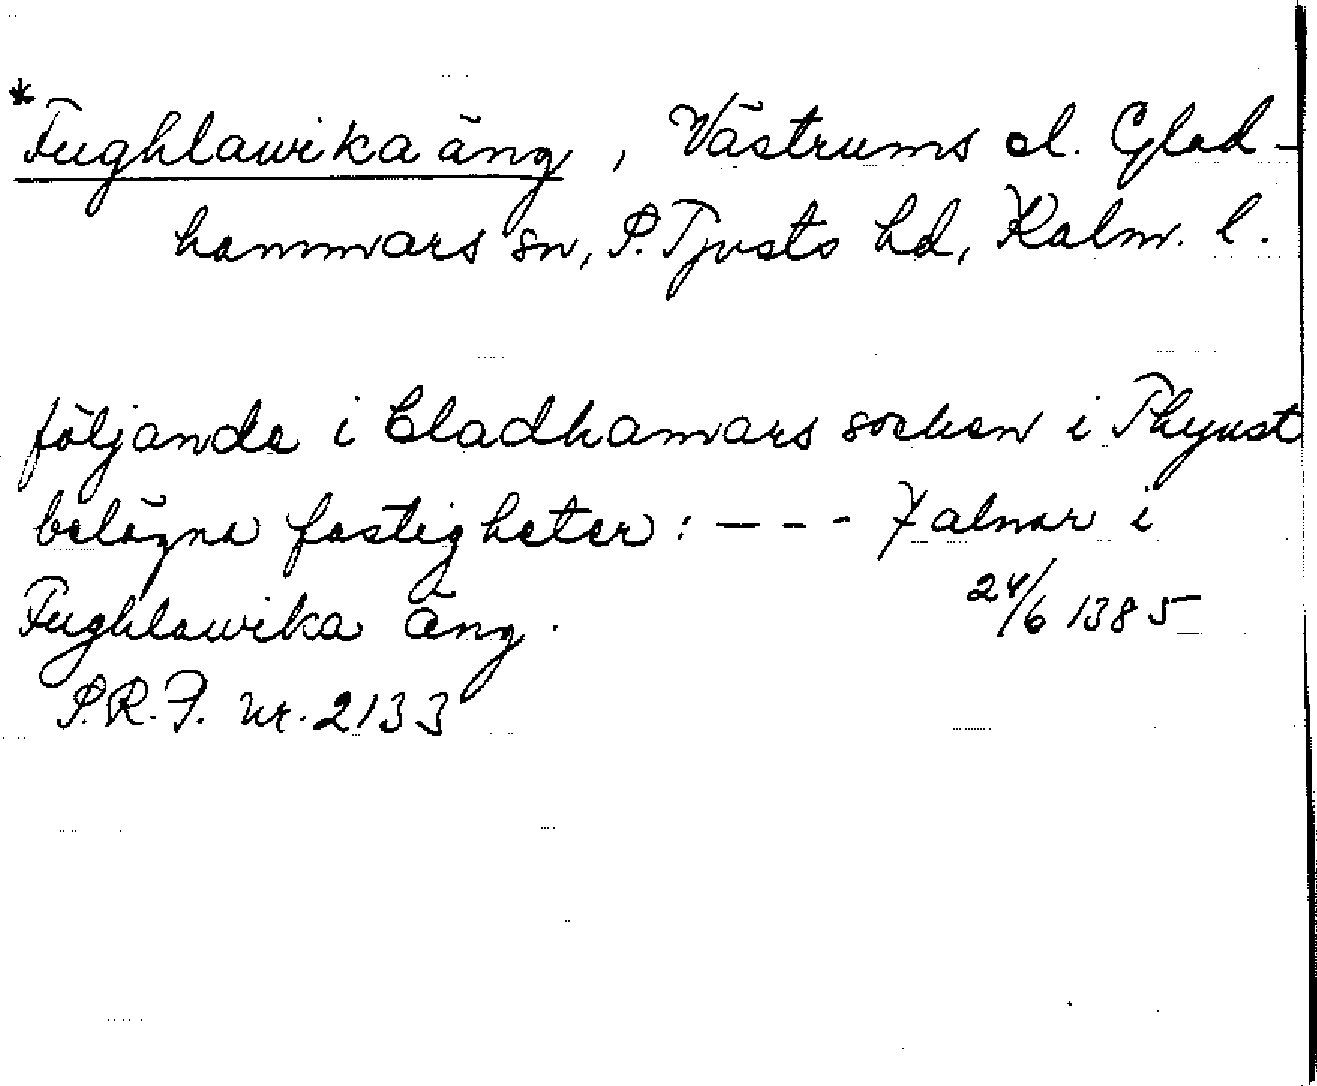 *Fughlawika äng, Västrums el. Glad-
hammars sn, S. Tjusts hd, Kalm. l.
följande i Cladhamars socken i Thyust
belägna fastigheter: - - - 7 alnar i
Fughlawika äng. 24/6 1385
S.R.P. nr. 2133